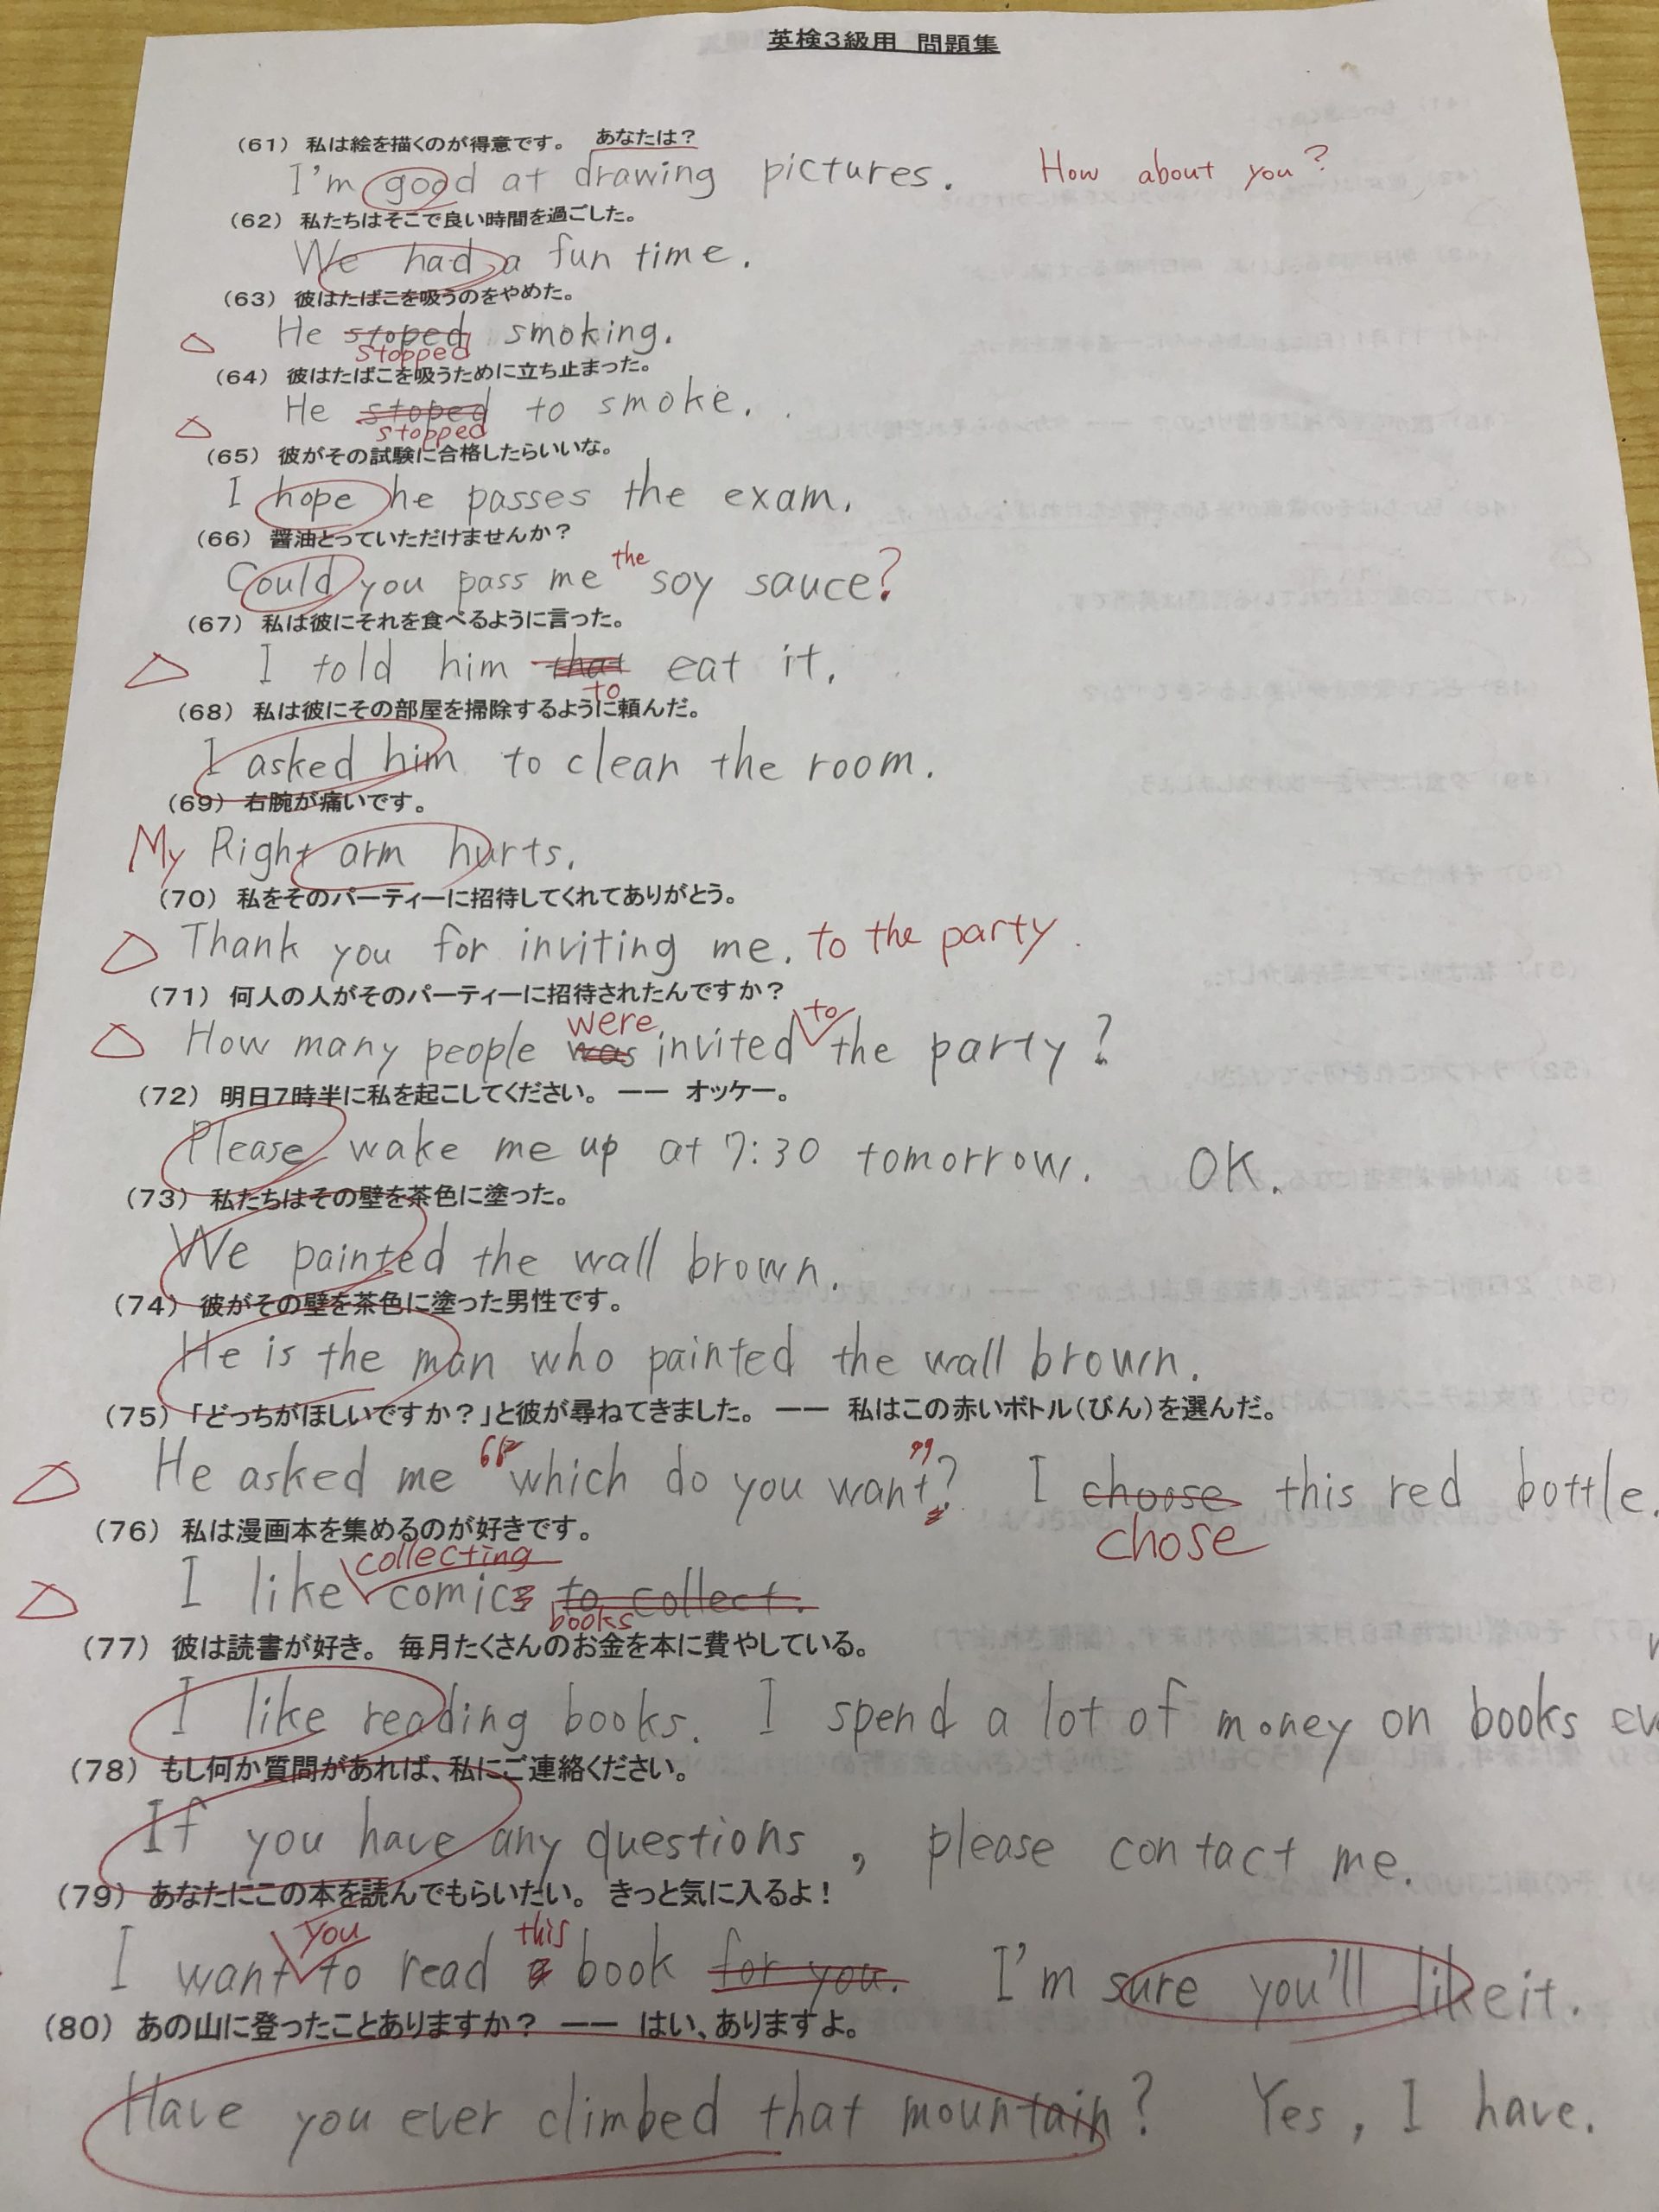 英検3級用 問題集
(61) 私は絵を描くのが得意です。 あなたは?
I'm good at drawing pictures. How about you?
(62) 私たちはそこで良い時間を過ごした。
We had a fun time.
(63) 彼はたばこを吸うのをやめた。
△ He stoped smoking.
stopped
(64) 彼はたばこを吸うために立ち止まった。
△ He stoped to smoke.
stopped
(65) 彼がその試験に合格したらいいな。
I hope he passes the exam.
(66) 醤油とっていただけませんか?
the
Could you pass me soy sauce?
(67) 私は彼にそれを食べるように言った。
△ I told him that eat it.
to
(68) 私は彼にその部屋を掃除するように頼んだ。
I asked him to clean the room.
(69) 右腕が痛いです。
My Right arm hurts.
(70) 私をそのパーティーに招待してくれてありがとう。
△ Thank you for inviting me. to the party.
(71) 何人の人がそのパーティーに招待されたんですか?
were to
△ How many people was invited the party?
(72) 明日7時半に私を起こしてください。 ーー オッケー。
Please wake me up at 7:30 tomorrow. OK.
(73) 私たちはその壁を茶色に塗った。
We painted the wall brown.
(74) 彼がその壁を茶色に塗った男性です。
He is the man who painted the wall brown.
(75) 「どっちがほしいですか?」と彼が尋ねてきました。 ーー 私はこの赤いボトル(びん)を選んだ。
△ He asked me “which do you want”? I choose this red bottle.
chose
(76) 私は漫画本を集めるのが好きです。
collecting
△ I like comics to collect.
books
(77) 彼は読書が好き。 毎月たくさんのお金を本に費やしている。
I like reading books. I spend a lot of money on books ev
(78) もし何か質問があれば、私にご連絡ください。
If you have any questions, please contact me.
(79) あなたにこの本を読んでもらいたい。 きっと気に入るよ!
you this
I want to read a book for you. I'm sure you'll like it.
(80) あの山に登ったことありますか? ーー はい、ありますよ。
Have you ever climbed that mountain? Yes, I have.